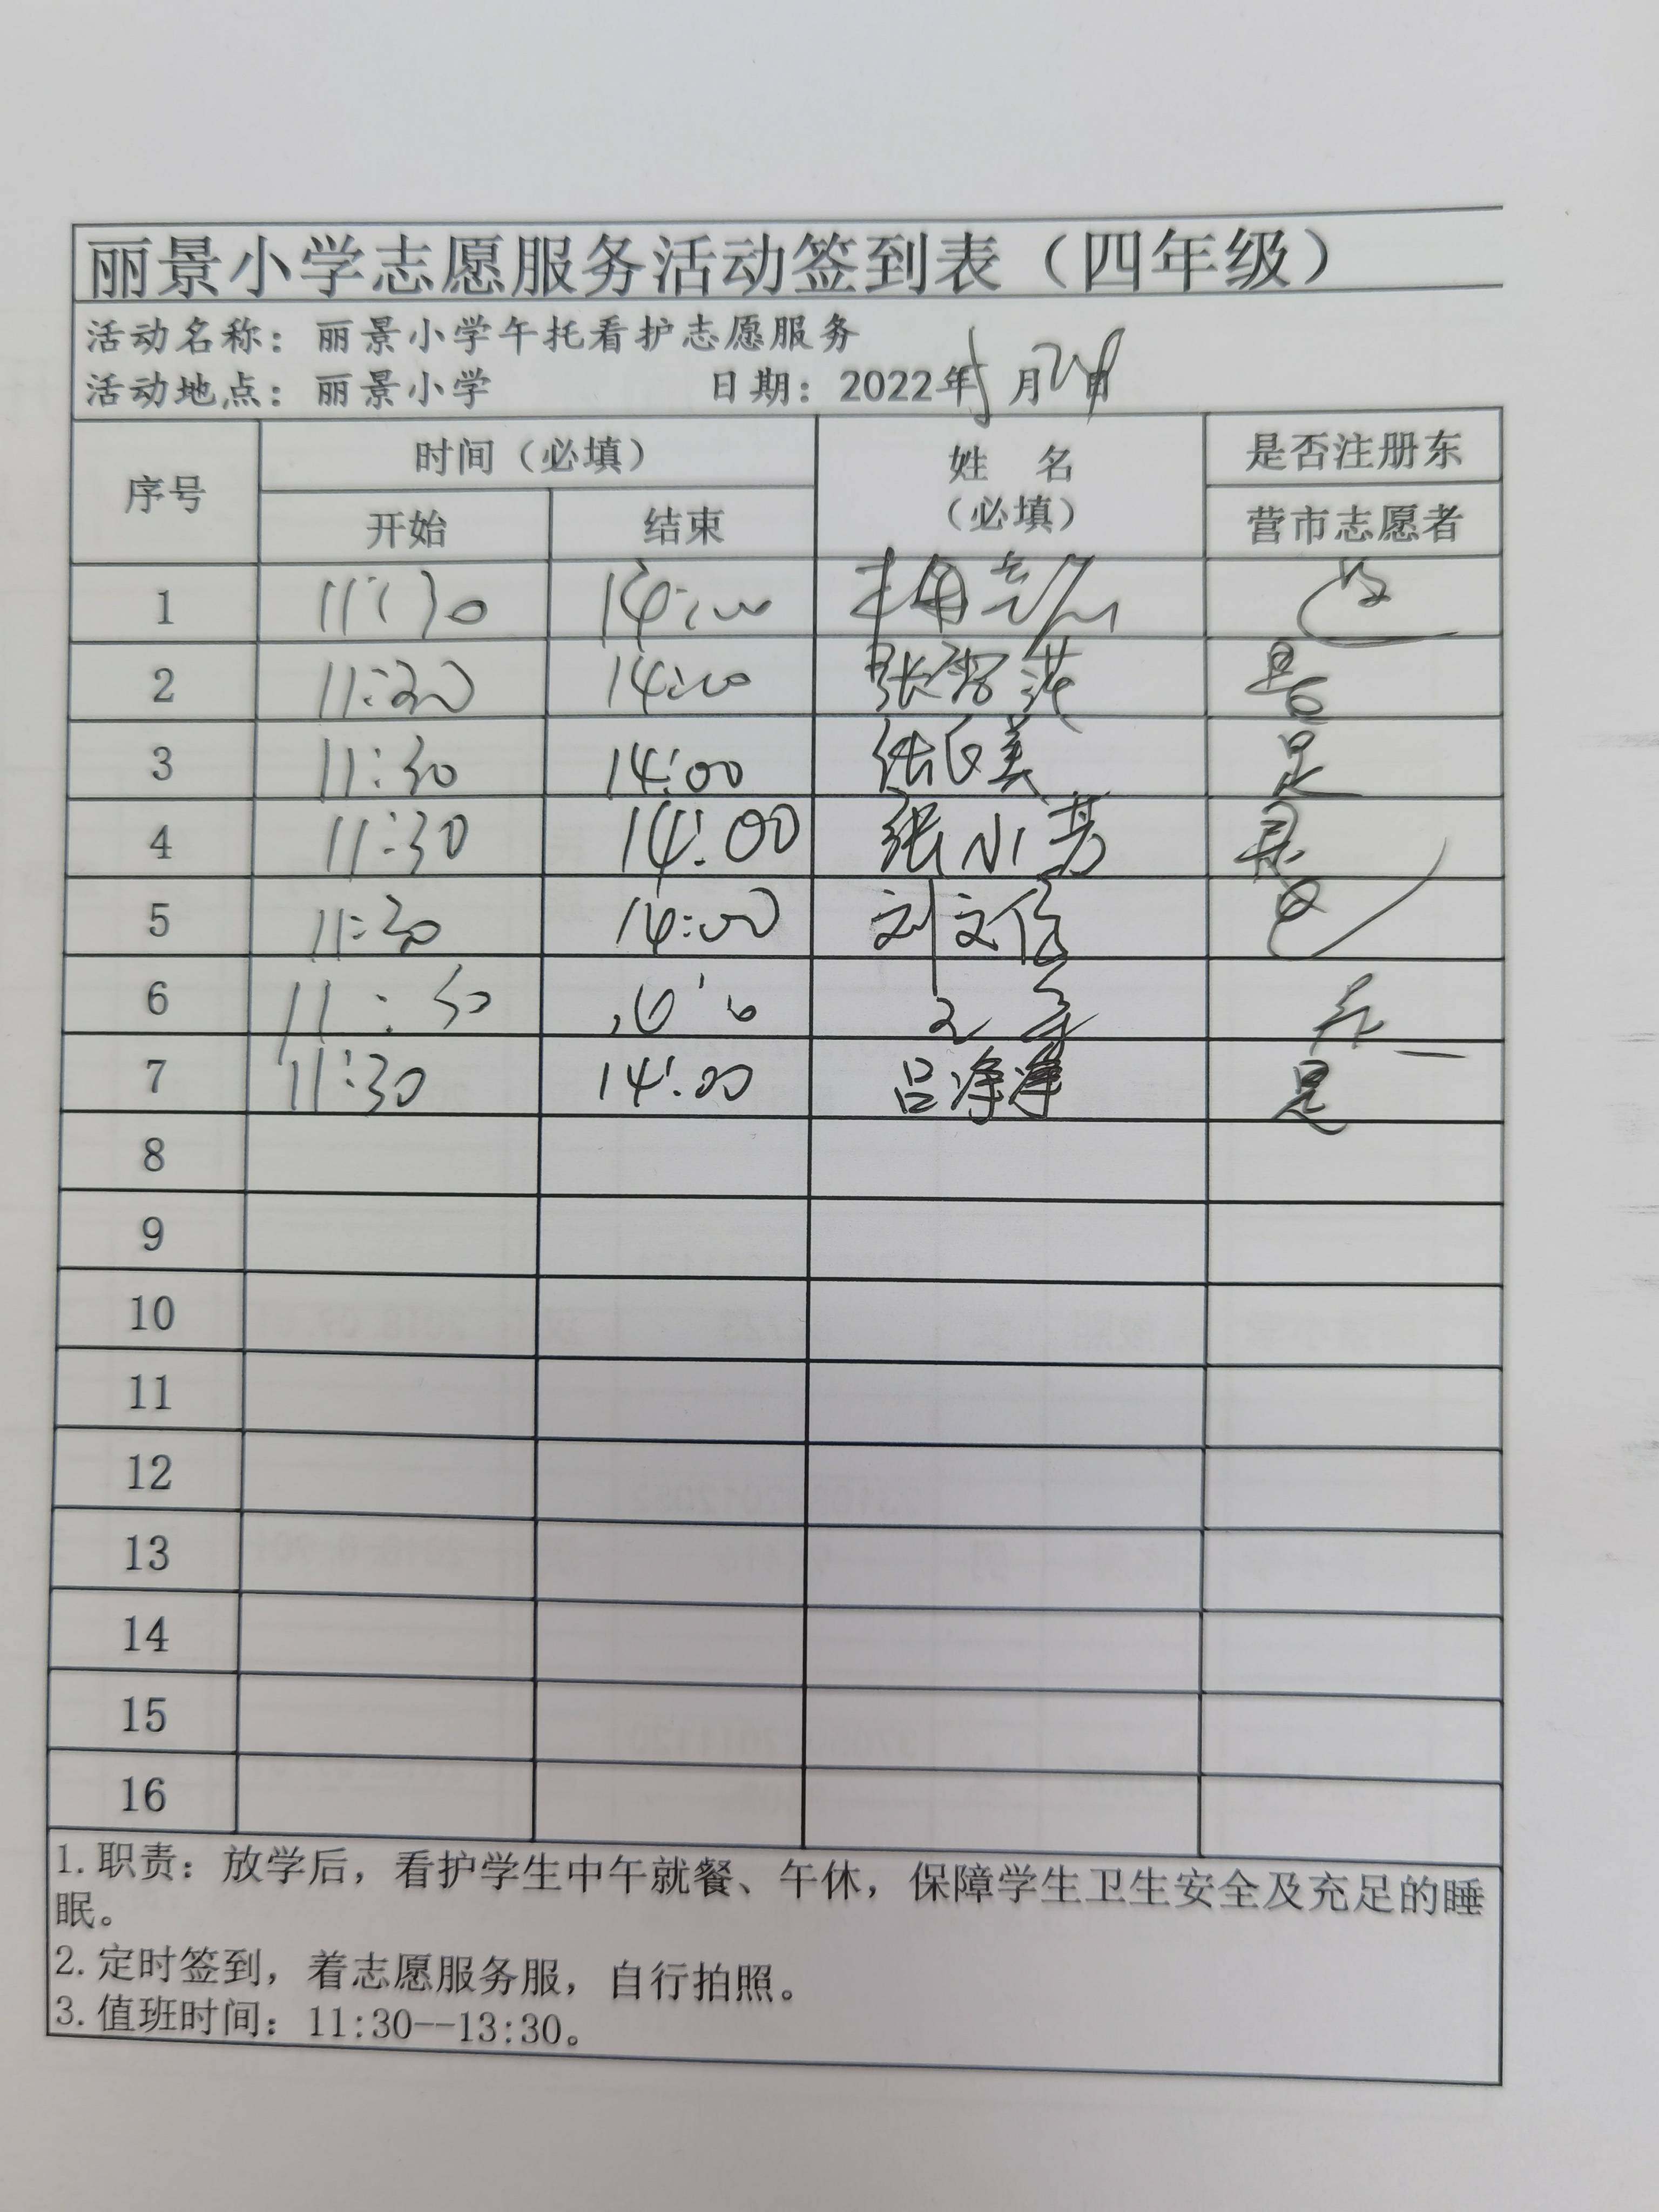 丽景小学志愿服务活动签到表（四年级）
活动名称：丽景小学午托看护志愿服务
活动地点：丽景小学 日期：2022年5月 日
序号 时间（必填） 姓 名（必填） 是否注册东营市志愿者
开始 结束
1 11:30 14:00
2 11:30 14:00 张 是
3 11:30 14:00 张 美 是
4 11:30 14:00 张小芳 是
5 11:30 14:00 刘文
6 11:30
7 11:30 14:00 吕净净 是
8
9
10
11
12
13
14
15
16
1.职责：放学后，看护学生中午就餐、午休，保障学生卫生安全及充足的睡
眠。
2.定时签到，着志愿服务服，自行拍照。
3.值班时间：11:30--13:30。